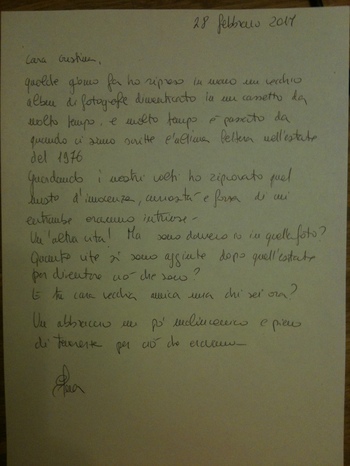 28 febbraio 2017
Cara Cristina,
qualche giorno fa ho ripreso in mano un vecchio
album di fotografie dimenticato in un cassetto da
molto tempo, e molto tempo è passato da
quando ci siamo scritte l'ultima lettera nell'estate
del 1976
Guardando i nostri volti ho ritrovato quel
misto d'innocenza, curiosità e forza di cui
entrambe eravamo intrise -
Un'altra vita! Ma sono davvero io in quella foto?
Quante vite si sono aggiunte dopo quell'estate
per diventare ciò che sono?
E tu cara vecchia amica mia chi sei ora?
Un abbraccio un pò malinconico e pieno
di tenerezza per ciò che eravamo